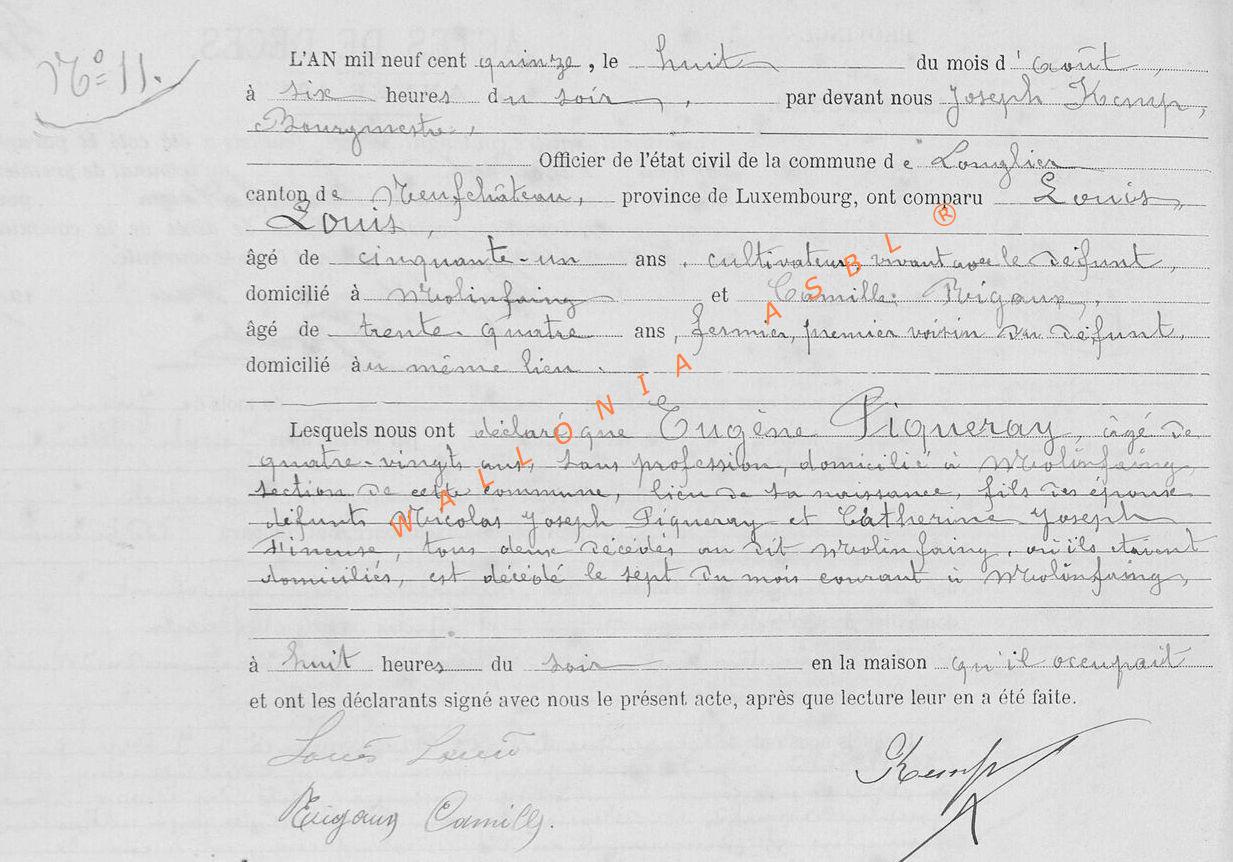 N° 11.
L'AN mil neuf cent quinze, le huit du mois d'août,
à six heures du soir, par devant nous Joseph Kemp,
Bourgmestre,
Officier de l'état civil de la commune de Longlier
canton de Neufchâteau, province de Luxembourg, ont comparu Louis,
Louis,
âgé de cinquante-un ans, cultivateur, vivant avec le défunt,
domicilié à Molinfaing et Camille Rigaux,
âgé de trente quatre ans, fermier, premier voisin du défunt,
domicilié au même lieu.
Lesquels nous ont déclaré que Eugène Piqueray, âgé de
quatre-vingts ans, sans profession, domicilié à Molinfaing,
section de cette commune, lieu de sa naissance, fils des époux
défunts Nicolas Joseph Piqueray et Catherine Joseph
tous deux décédés au dit Molinfaing, où ils étaient
domiciliés, est décédé le sept du mois courant à Molinfaing,
à huit heures du soir en la maison qu'il occupait
et ont les déclarants signé avec nous le présent acte, après que lecture leur en a été faite.
Louis Louis
Kemp
Rigaux Camille.
WALLONIA ASBL ®